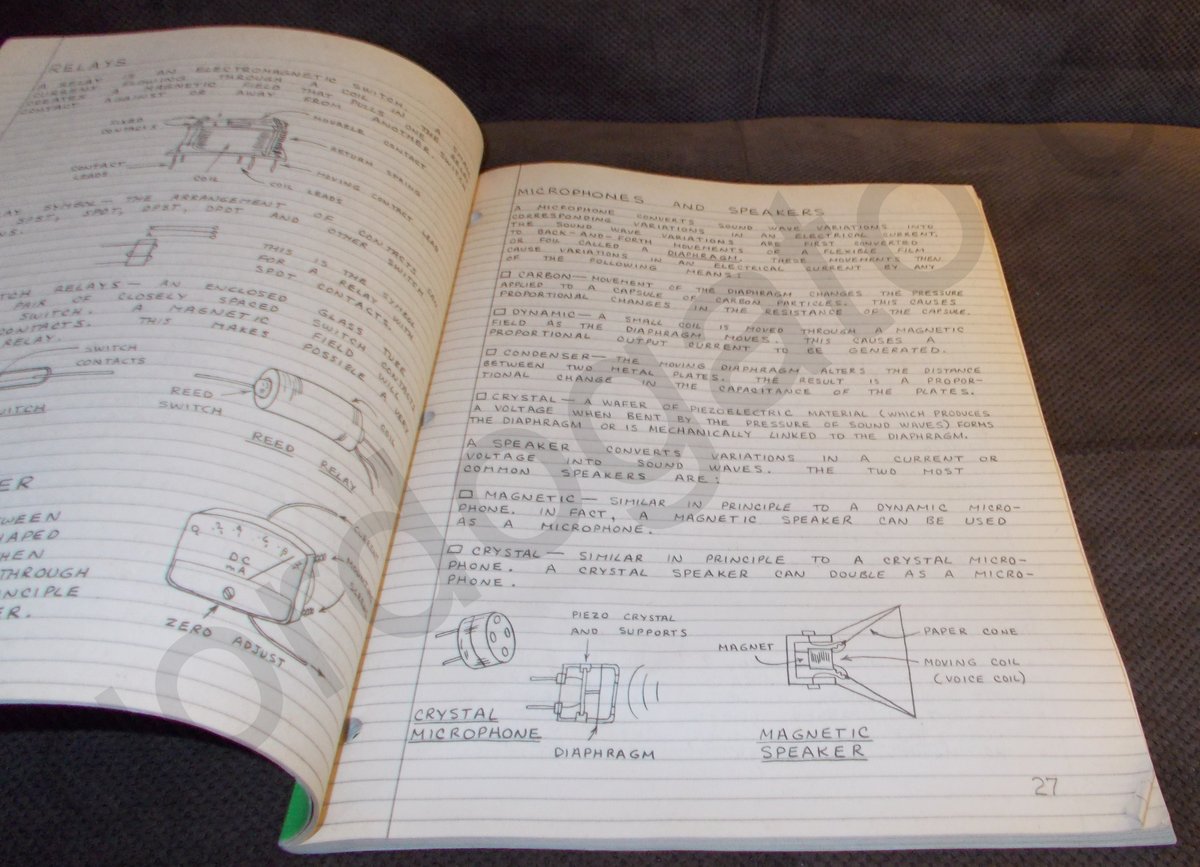 RELAYS
A RELAY IS AN ELECTROMAGNETIC SWITCH. A SMALL
CURRENT FLOWING THROUGH A COIL IN THE RELAY
CREATES A MAGNETIC FIELD THAT PULLS ONE SWITCH
CONTACT AGAINST OR AWAY FROM ANOTHER
FIXED
CONTACTS
MOVABLE
CONTACT
RETURN
SPRING
CONTACT
LEADS
COIL
COIL LEADS
MOVING CONTACT
LEAD
SYMBOL — THE ARRANGEMENT OF
SPST, SPDT, DPST, DPDT AND OTHER SWITCH
CONTACTS
THIS IS THE SYMBOL
FOR A RELAY WITH
SPDT CONTACTS.
RELAYS — AN ENCLOSED GLASS TUBE
PAIR OF CLOSELY SPACED SWITCH CONTACTS
SWITCH. A MAGNETIC FIELD WILL
CONTACTS. THIS MAKES POSSIBLE A VERY
RELAY
SWITCH
CONTACTS
REED
SWITCH
COIL
REED RELAY
DC
mA
ZERO ADJUST
THROUGH
MICROPHONES AND SPEAKERS
A MICROPHONE CONVERTS SOUND WAVE VARIATIONS INTO
CORRESPONDING VARIATIONS IN AN ELECTRICAL CURRENT.
THE SOUND WAVE VARIATIONS ARE FIRST CONVERTED
TO BACK-AND-FORTH MOVEMENTS OF A FLEXIBLE FILM
OR FOIL CALLED A DIAPHRAGM. THESE MOVEMENTS THEN
CAUSE VARIATIONS IN AN ELECTRICAL CURRENT BY ANY
OF THE FOLLOWING MEANS:
□ CARBON — MOVEMENT OF THE DIAPHRAGM CHANGES THE PRESSURE
APPLIED TO A CAPSULE OF CARBON PARTICLES. THIS CAUSES
PROPORTIONAL CHANGES IN THE RESISTANCE OF THE CAPSULE.
□ DYNAMIC — A SMALL COIL IS MOVED THROUGH A MAGNETIC
FIELD AS THE DIAPHRAGM MOVES. THIS CAUSES A
PROPORTIONAL OUTPUT CURRENT TO BE GENERATED.
□ CONDENSER — THE MOVING DIAPHRAGM ALTERS THE DISTANCE
BETWEEN TWO METAL PLATES. THE RESULT IS A PROPOR-
TIONAL CHANGE IN THE CAPACITANCE OF THE PLATES.
□ CRYSTAL — A WAFER OF PIEZOELECTRIC MATERIAL (WHICH PRODUCES
A VOLTAGE WHEN BENT BY THE PRESSURE OF SOUND WAVES) FORMS
THE DIAPHRAGM OR IS MECHANICALLY LINKED TO THE DIAPHRAGM.
A SPEAKER CONVERTS VARIATIONS IN A CURRENT OR
VOLTAGE INTO SOUND WAVES. THE TWO MOST
COMMON SPEAKERS ARE:
□ MAGNETIC — SIMILAR IN PRINCIPLE TO A DYNAMIC MICRO-
PHONE. IN FACT, A MAGNETIC SPEAKER CAN BE USED
AS A MICROPHONE.
□ CRYSTAL — SIMILAR IN PRINCIPLE TO A CRYSTAL MICRO-
PHONE. A CRYSTAL SPEAKER CAN DOUBLE AS A MICRO-
PHONE.
PIEZO CRYSTAL
AND SUPPORTS
CRYSTAL
MICROPHONE
DIAPHRAGM
MAGNET
PAPER CONE
MOVING COIL
(VOICE COIL)
MAGNETIC
SPEAKER
27